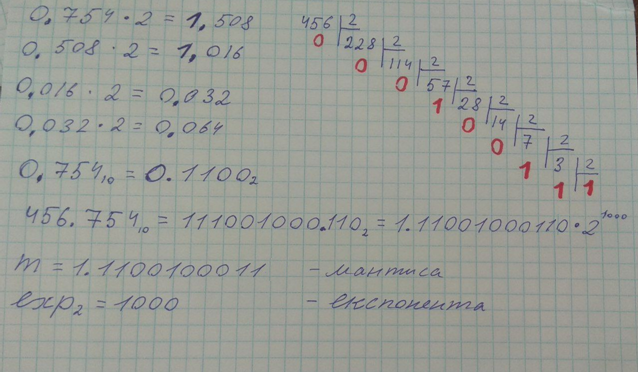 0,754 · 2 = 1,508
0,508 · 2 = 1,016
0,016 · 2 = 0,032
0,032 · 2 = 0,064
456 2
0 228 2
0 114 2
0 57 2
1 28 2
0 14 2
0 7 2
1 3 2
1 1
0,754₁₀ = 0.1100₂
456.754₁₀ = 111001000.110₂ = 1.11001000110·2¹⁰⁰⁰
m = 1.1100100011 - мантиса
exp₂ = 1000 - експонента